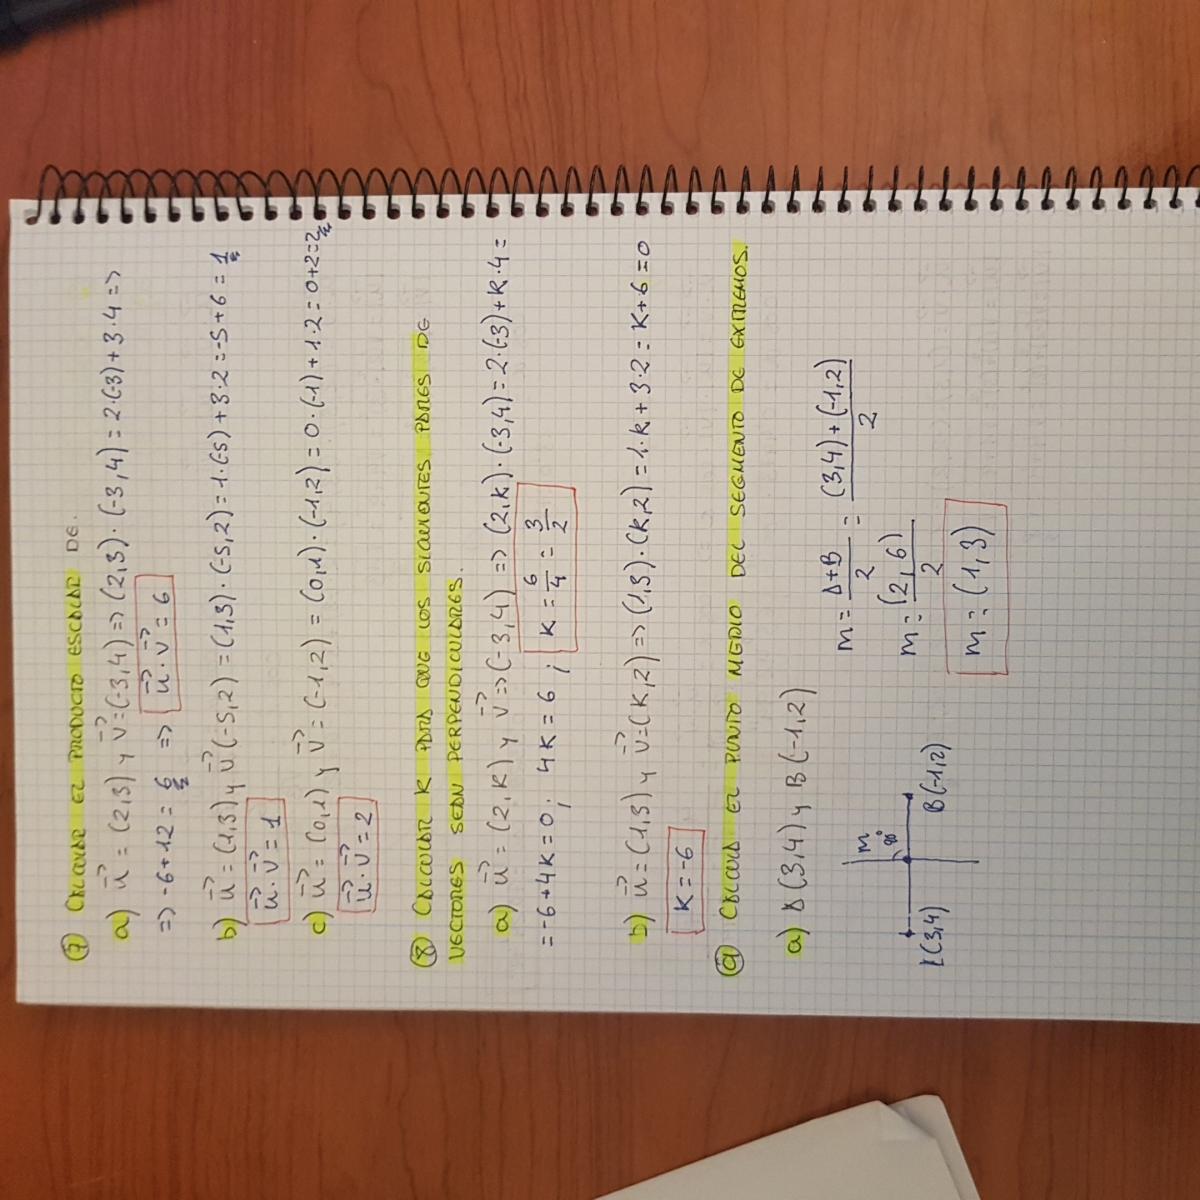 7 CALCULAR EL PRODUCTO ESCALAR DE.
a) u⃗ = (2,3) y v⃗=(-3,4) => (2,3)·(-3,4) = 2·(-3)+3·4 =>
=> -6+12 = 6 => u⃗·v⃗ = 6
b) u⃗ = (1,3) y v⃗(-5,2) = (1,3)·(-5,2) = 1·(-5)+3·2 = -5+6 = 1
u⃗·v⃗ = 1
c) u⃗ = (0,1) y v⃗ = (-1,2) = (0,1)·(-1,2) = 0·(-1)+1·2 = 0+2=2
u⃗·v⃗ = 2
8 CALCULAR K PARA QUE LOS SIGUIENTES PARES DE
VECTORES SEAN PERPENDICULARES.
a) u⃗ = (2,K) y v⃗ => (-3,4) => (2,K)·(-3,4) = 2·(-3)+K·4 =
= -6+4K = 0; 4K = 6; K = 6/4 = 3/2
b) u⃗ = (1,3) y v⃗=(K,2) => (1,3)·(K,2) = 1·K + 3·2 = K+6 = 0
K = -6
9 CALCULA EL PUNTO MEDIO DEL SEGMENTO DE EXTREMOS.
a) A(3,4) y B(-1,2)
m = A+B/2 = (3,4)+(-1,2)/2
m = (2,6)/2
m = (1,3)
m
90°
(3,4)
B(-1,2)